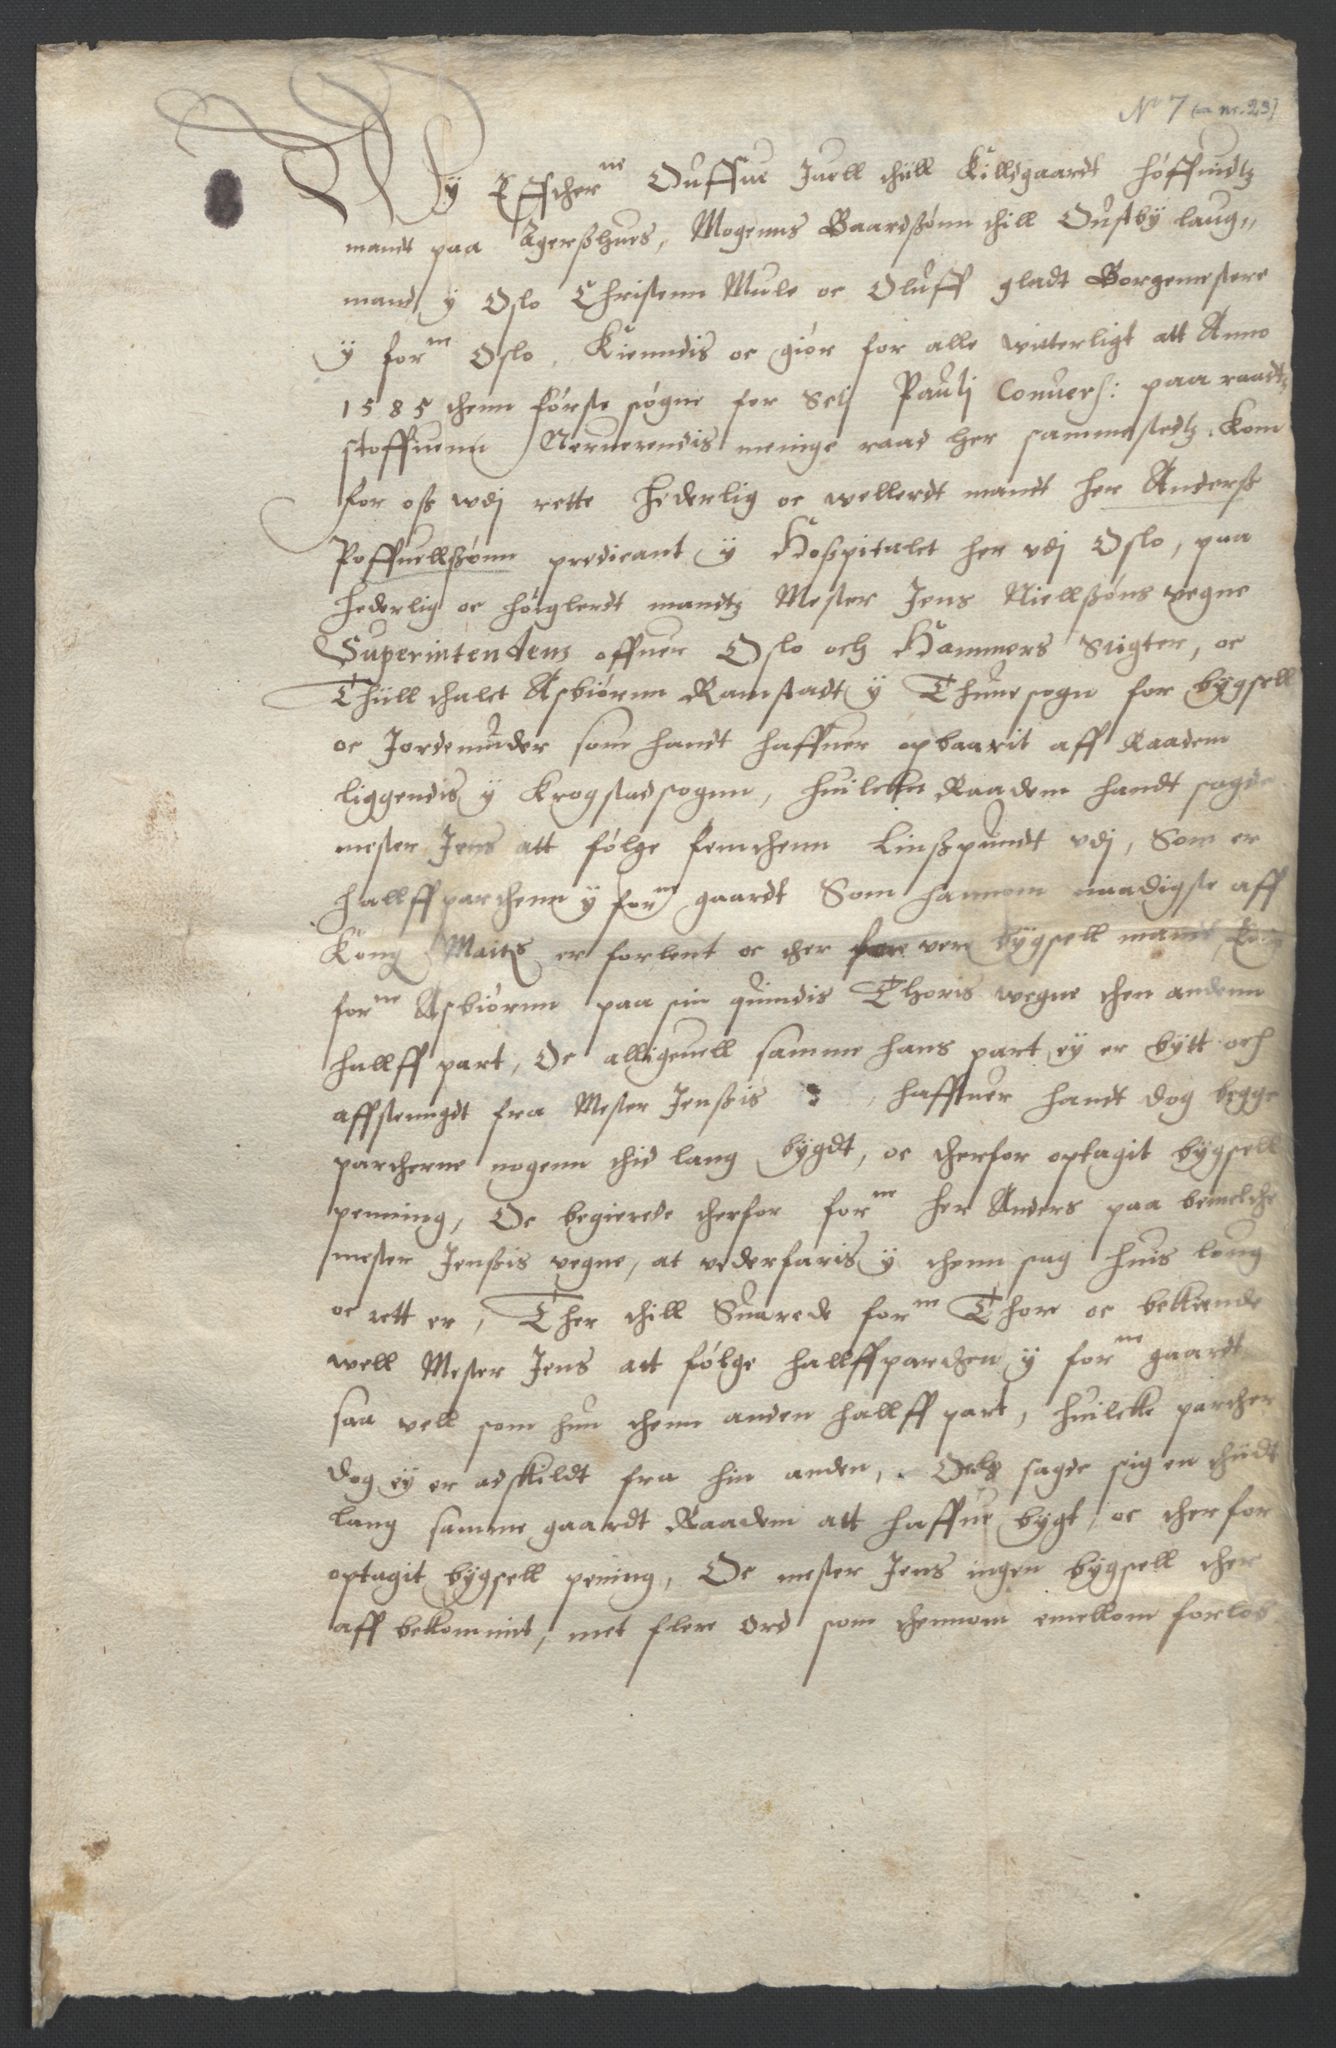 N° 7 (a nr. 23)
Wy Effscherne Ouffue Juell thill Killdgaardt höffuidtz
mandt paa Agerßhues, Mogenns Baardßønn thill Oustby laug,,
mand y Oslo Christenn Mule oc Oluff gladt Borgemestere
y forne Oslo, Kienndis oc giør for alle witterligt att Anno
1585 thenn første søgne for Sctj Paulj Conuers: paa raadtz
stoffuenn Neruerendis meinige raad her sammestedtz, Kom
for oß wdj rette Hederlig oc wellerdt mandt her Anderß
Poffuellßønn predicant y Hoßpitalet her vdj Oslo, paa
Hederlig oc høiglerdt mandtz Mester Jens Niellßøns vegne
Superintendenz offuer Oslo och Hammers Stigter, oc
Thiill thalet Asbiørnn Ramstadt y Thune sogn for bygsell
oc Jordemuder som handt haffuer opbaarit aff Raadem
liggendis y Krogstadsognn, huilcken Raadem handt sagde
mester Jens att følge femthenn Linßpundt vdj, Som er
hallffparthenn y forne gaardt Som hannom naadigste aff
Kong Maits er forlent oc ther for vere bygsell mandt,
forne Asbiørnn paa sin quindis Thoris wegne then andenn
hallff part, Oc alligeuell samme hans part ey er bytt och
affsteungdt fra Mester Jenßis, haffuer handt dog begge
partherne nogenn thid lang bygdt, oc therfor optagit bygsell
penning, Oc begierede therfor forne her Anders paa bemelthe
mester Jenßis vegne, at vederfaris y thenn sag huis loug
oc rett er, Ther thill Suarede forne Thore oc bekiende
well Mester Jens att følge hallffparthen y forne gaardt
saa vell som hun thenn anden hallff part, huilcke parther
dog ey er adskildt fra hin anden, Och sagde sig en thidt
lang samme gaardt Raadem att haffue bygt, oc therfor
optagit bygsell pening, Oc mester Jens ingen bygsell ther
aff bekommit, met flere ord som thennom emellom forlob